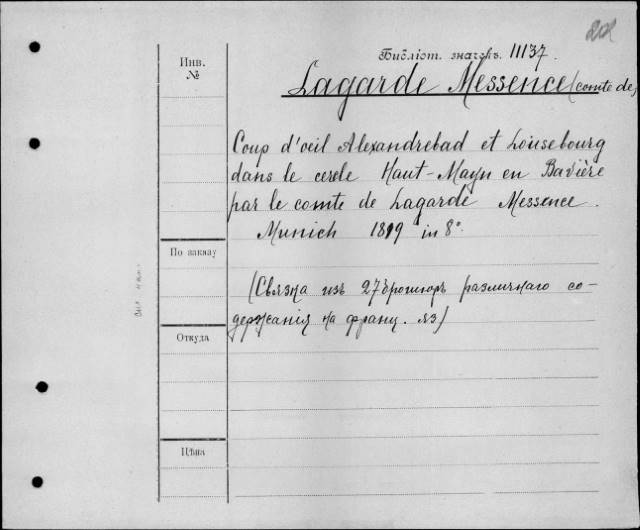 Инв.
№
Библіот. значекъ. 11137.
Lagarde Messence (comte de)
Coup d'oeil Alexandrebad et Louisebourg
dans le cercle Haut-Mayn en Bavière
par le comte de Lagarde Messence.
Munich 1819 in 8°
По заказу
(Связка изъ 27 брошюръ различнаго со-
держанія на франц. яз)
Откуда
Цѣна